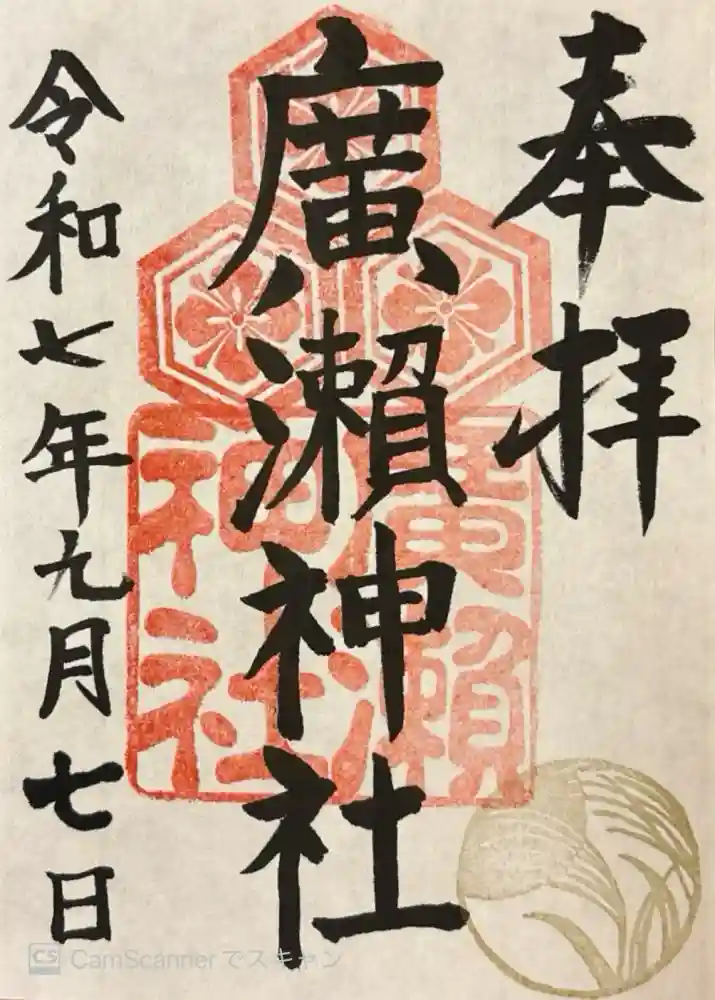 奉拝
廣瀨神社
令和七年九月七日
廣瀨
神社
CS CamScannerでスキャン